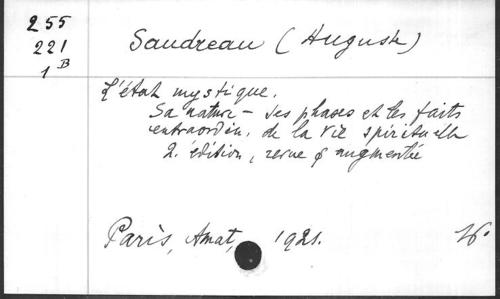 255
221
1 B
Saudreau (Auguste)
L'état mystique.
Sa nature – ses phases et les faits
extraordin. de la vie spirituelle
2. édition, revue & augmentée
Paris, Amat, 1921.